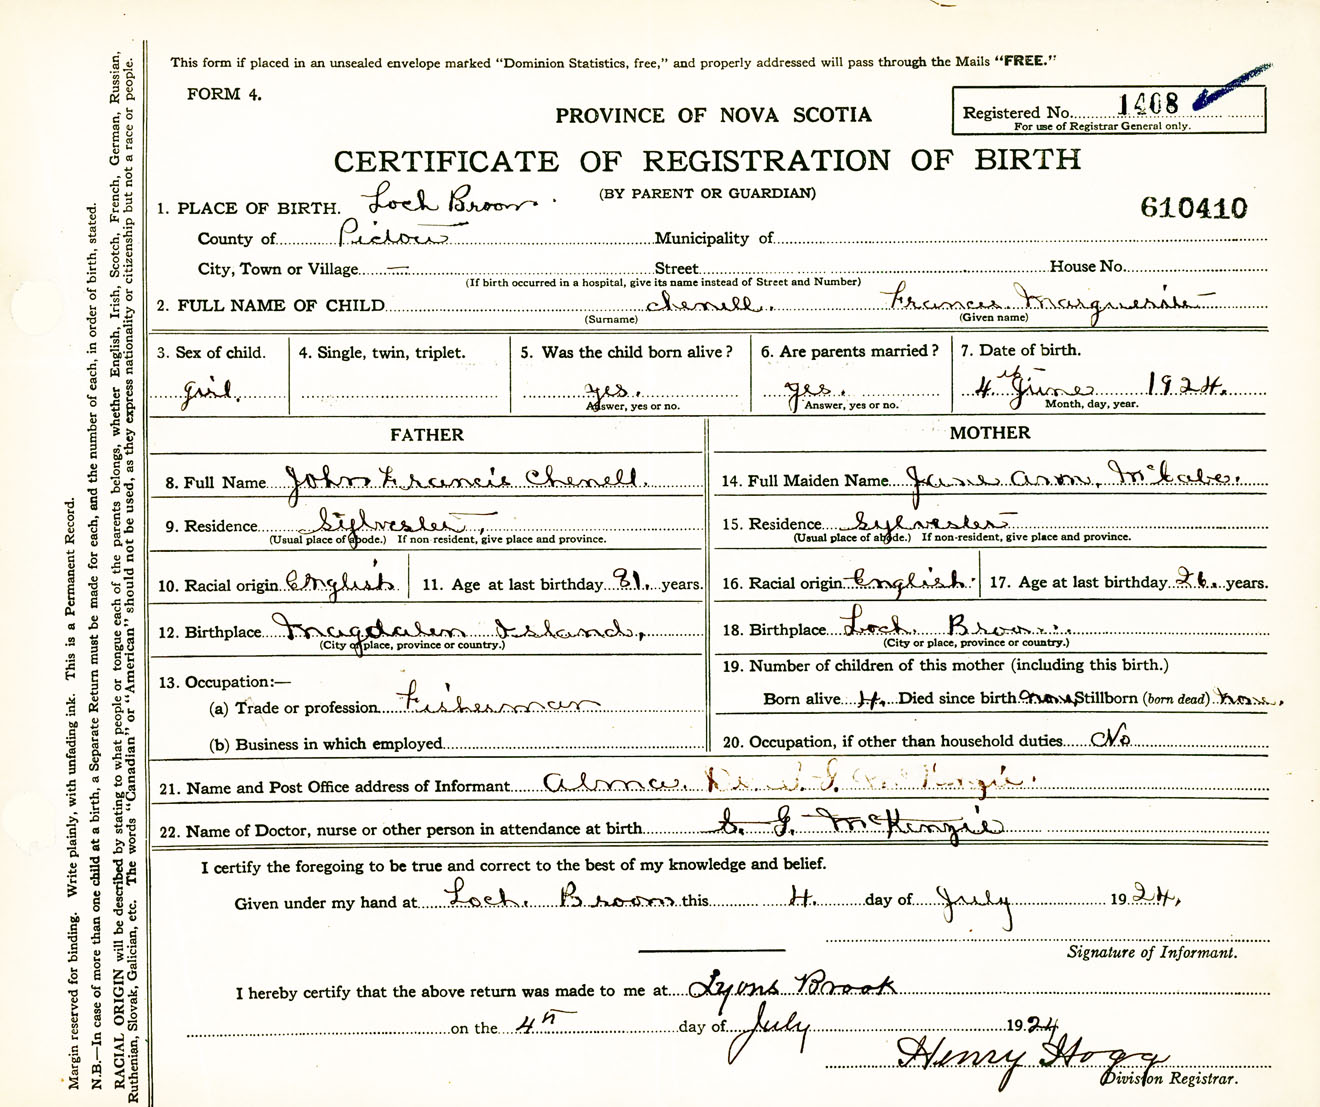 This form if placed in an unsealed envelope marked "Dominion Statistics, free," and properly addressed will pass through the Mails "FREE."
FORM 4.
PROVINCE OF NOVA SCOTIA
Registered No. 1408
For use of Registrar General only.
CERTIFICATE OF REGISTRATION OF BIRTH
(BY PARENT OR GUARDIAN)
610410
1. PLACE OF BIRTH. Loch Broom.
County of Pictou Municipality of
City, Town or Village — Street House No.
(If birth occurred in a hospital, give its name instead of Street and Number)
2. FULL NAME OF CHILD Chenell. Frances Marguerite
(Surname) (Given name)
3. Sex of child. 4. Single, twin, triplet. 5. Was the child born alive? 6. Are parents married? 7. Date of birth.
girl. yes. yes. 4th June 1924.
Answer, yes or no. Answer, yes or no. Month, day, year.
FATHER
8. Full Name John Francis Chenell.
9. Residence Sylvester,
(Usual place of abode.) If non-resident, give place and province.
10. Racial origin English 11. Age at last birthday 31. years.
12. Birthplace Magdalen Island,
(City or place, province or country.)
13. Occupation:—
(a) Trade or profession Fisherman
(b) Business in which employed
MOTHER
14. Full Maiden Name Jane Ann, McCabe.
15. Residence Sylvester
(Usual place of abode.) If non-resident, give place and province.
16. Racial origin English. 17. Age at last birthday 26. years.
18. Birthplace Loch Broom.
(City or place, province or country.)
19. Number of children of this mother (including this birth.)
Born alive 4. Died since birth none, Stillborn (born dead) none.
20. Occupation, if other than household duties No
21. Name and Post Office address of Informant Alma.
22. Name of Doctor, nurse or other person in attendance at birth S. G. McKenzie
I certify the foregoing to be true and correct to the best of my knowledge and belief.
Given under my hand at Loch Broom this 4. day of July 1924,
Signature of Informant.
I hereby certify that the above return was made to me at Lyons Brook
on the 4th day of July 1924
Henry Hogg
Division Registrar.
Margin reserved for binding. Write plainly, with unfading ink. This is a Permanent Record.
N.B.—In case of more than one child at a birth, a Separate Return must be made for each, and the number of each, in order of birth, stated.
RACIAL ORIGIN will be described by stating to what people or tongue each of the parents belongs, whether English, Irish, Scotch, French, German, Russian,
Ruthenian, Slovak, Galician, etc. The words "Canadian" or "American" should not be used, as they express nationality or citizenship but not a race or people.